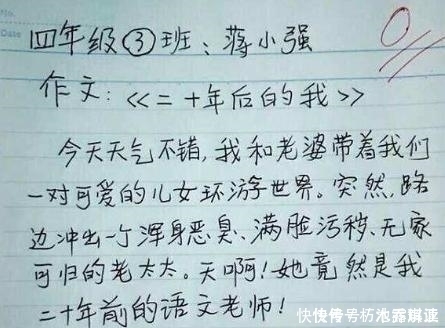 No.
Date
0
四年级③班:蒋小强
作文:《二十年后的我》
今天天气不错,我和老婆带着我们
一对可爱的儿女环游世界。突然,路
边冲出一个浑身恶臭、满脸污秽、无家
可归的老太太。天啊!她竟然是我
二十年前的语文老师!